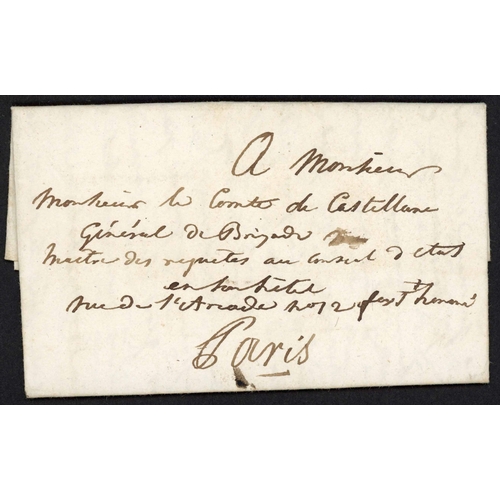 A Monsieur
Monsieur le Comte de Castellane
Général de Brigade
Maitre des requetes au conseil d'etat
en son hôtel
rue de l'Arcade no 12 st honoré
Paris